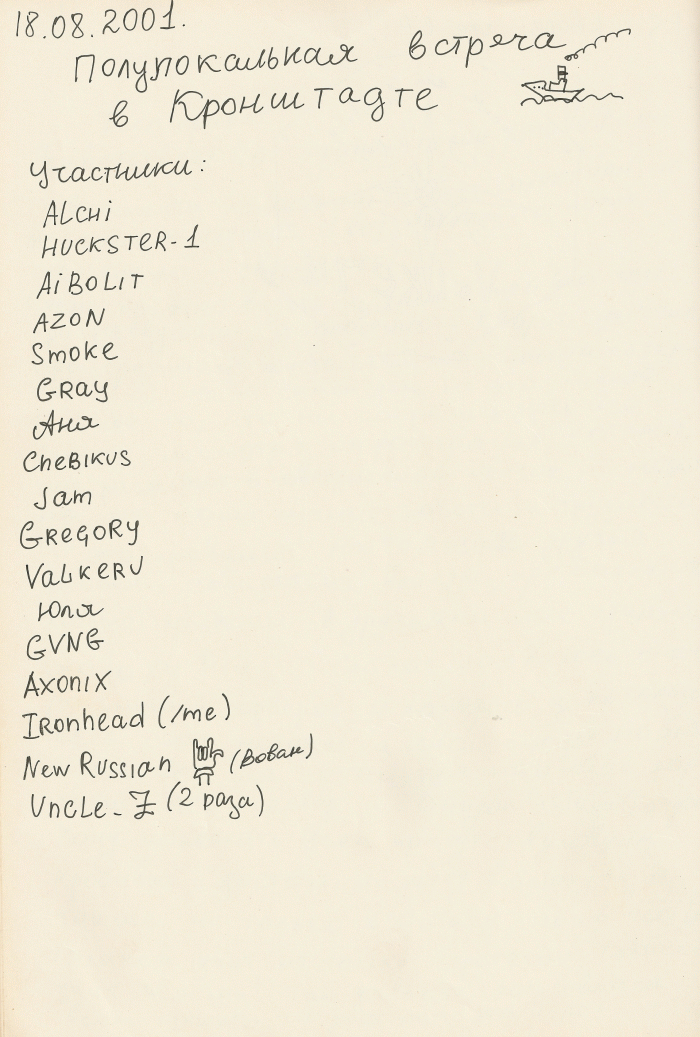 18.08.2001.
Полупокальная встреча
в Кронштадте
Участники:
ALCHi
HUCKSTER-1
AiBOLIT
AZON
Smoke
GRAY
Аня
CheBIKUS
Jam
GREGORY
VALKERU
Юля
GVNG
AXONIX
IRonhead (/me)
New Russian (Вован)
Uncle_Z (2 раза)